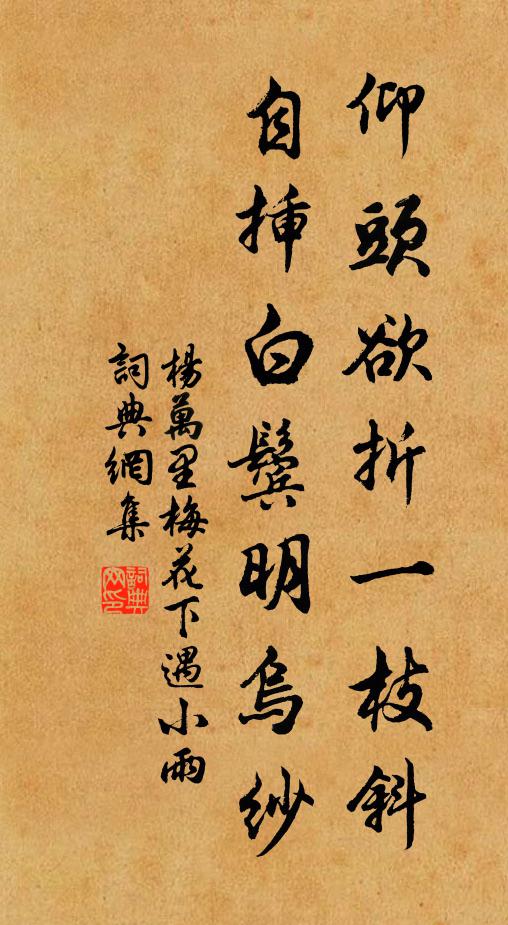 仰頭欲折一枝斜
自挿白鬢明烏紗
楊萬里梅花下遇小雨
詞典網集
詞典網印